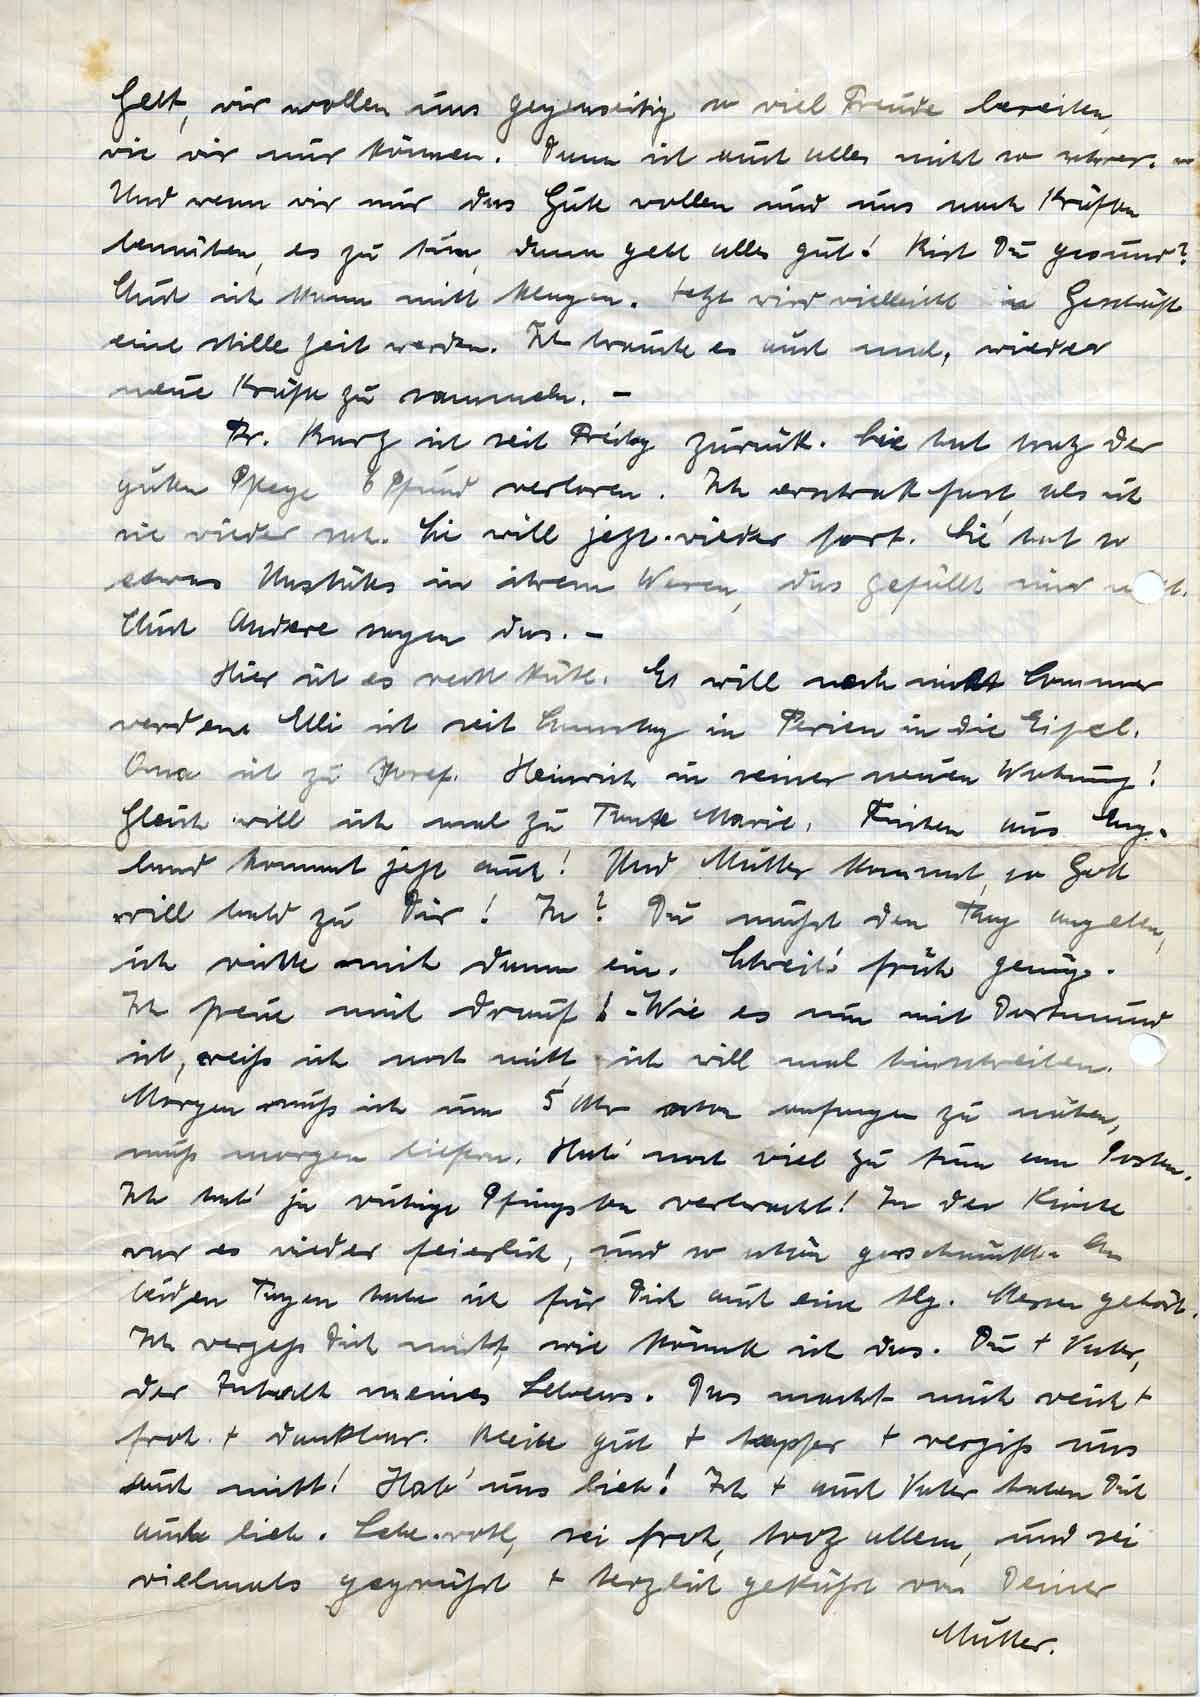 Gelt, wir wollen uns gegenseitig so viel Freude bereiten,
wie wir nur können. Dann ist auch alles nicht so schwer.
Und wenn wir nur das Gute wollen und uns nach Kräften
bemühen, es zu tun, dann geht alles gut! Bist Du gesund?
Auch ich kann nicht klagen. Jetzt wird vielleicht im Geschäft
eine stille Zeit werden. Ich brauche es auch mal, wieder
neue Kräfte zu sammeln. –
Fr. Kurz ist seit Freitag zurück. Sie hat trotz der
guten Pflege 6 Pfund verloren. Ich erschrak fast, als ich
sie wieder sah. Sie will jetzt wieder fort. Sie hat so
etwas Unstetes in ihrem Wesen, das gefällt mir nicht.
Auch Andere sagen das. –
Hier ist es recht kühl. Es will noch nicht Sommer
werden. Elli ist seit Samstag in Ferien in die Eifel.
Oma ist zu Josef. Heinrich in seiner neuen Wohnung!
Gleich will ich mal zu Tante Marie. Finchen aus Eng-
land kommt jetzt auch! Und Mutter kommt, so Gott
will bald zu Dir! Ja? Du mußt den Tag angeben,
ich richte mich dann ein. Schreib' früh genug.
Ich freue mich drauf! – Wie es nun mit Dortmund
ist, weiß ich noch nicht, ich will mal hinschreiben.
Morgen muß ich um 5 Uhr schon anfangen zu nähen,
muß morgen liefern. Hab' noch viel zu tun am Posten.
Ich hab' ja ruhige Pfingsten verbracht! In der Kirche
war es wieder feierlich, und so schön geschmückt. An
beiden Tagen habe ich für Dich auch eine hlg. Messe gehört.
Ich vergeß Dich nicht, wie könnte ich das. Du + Vater,
der Inhalt meines Lebens. Das macht mich reich +
froh + dankbar. Bleibe gut + tapfer + vergiß uns
auch nicht! Hab' uns lieb! Ich + auch Vater haben Dich
auch lieb. Lebe wohl, sei froh, trotz allem, und sei
vielmals gegrüßt + herzlich geküßt von Deiner
Mutter.